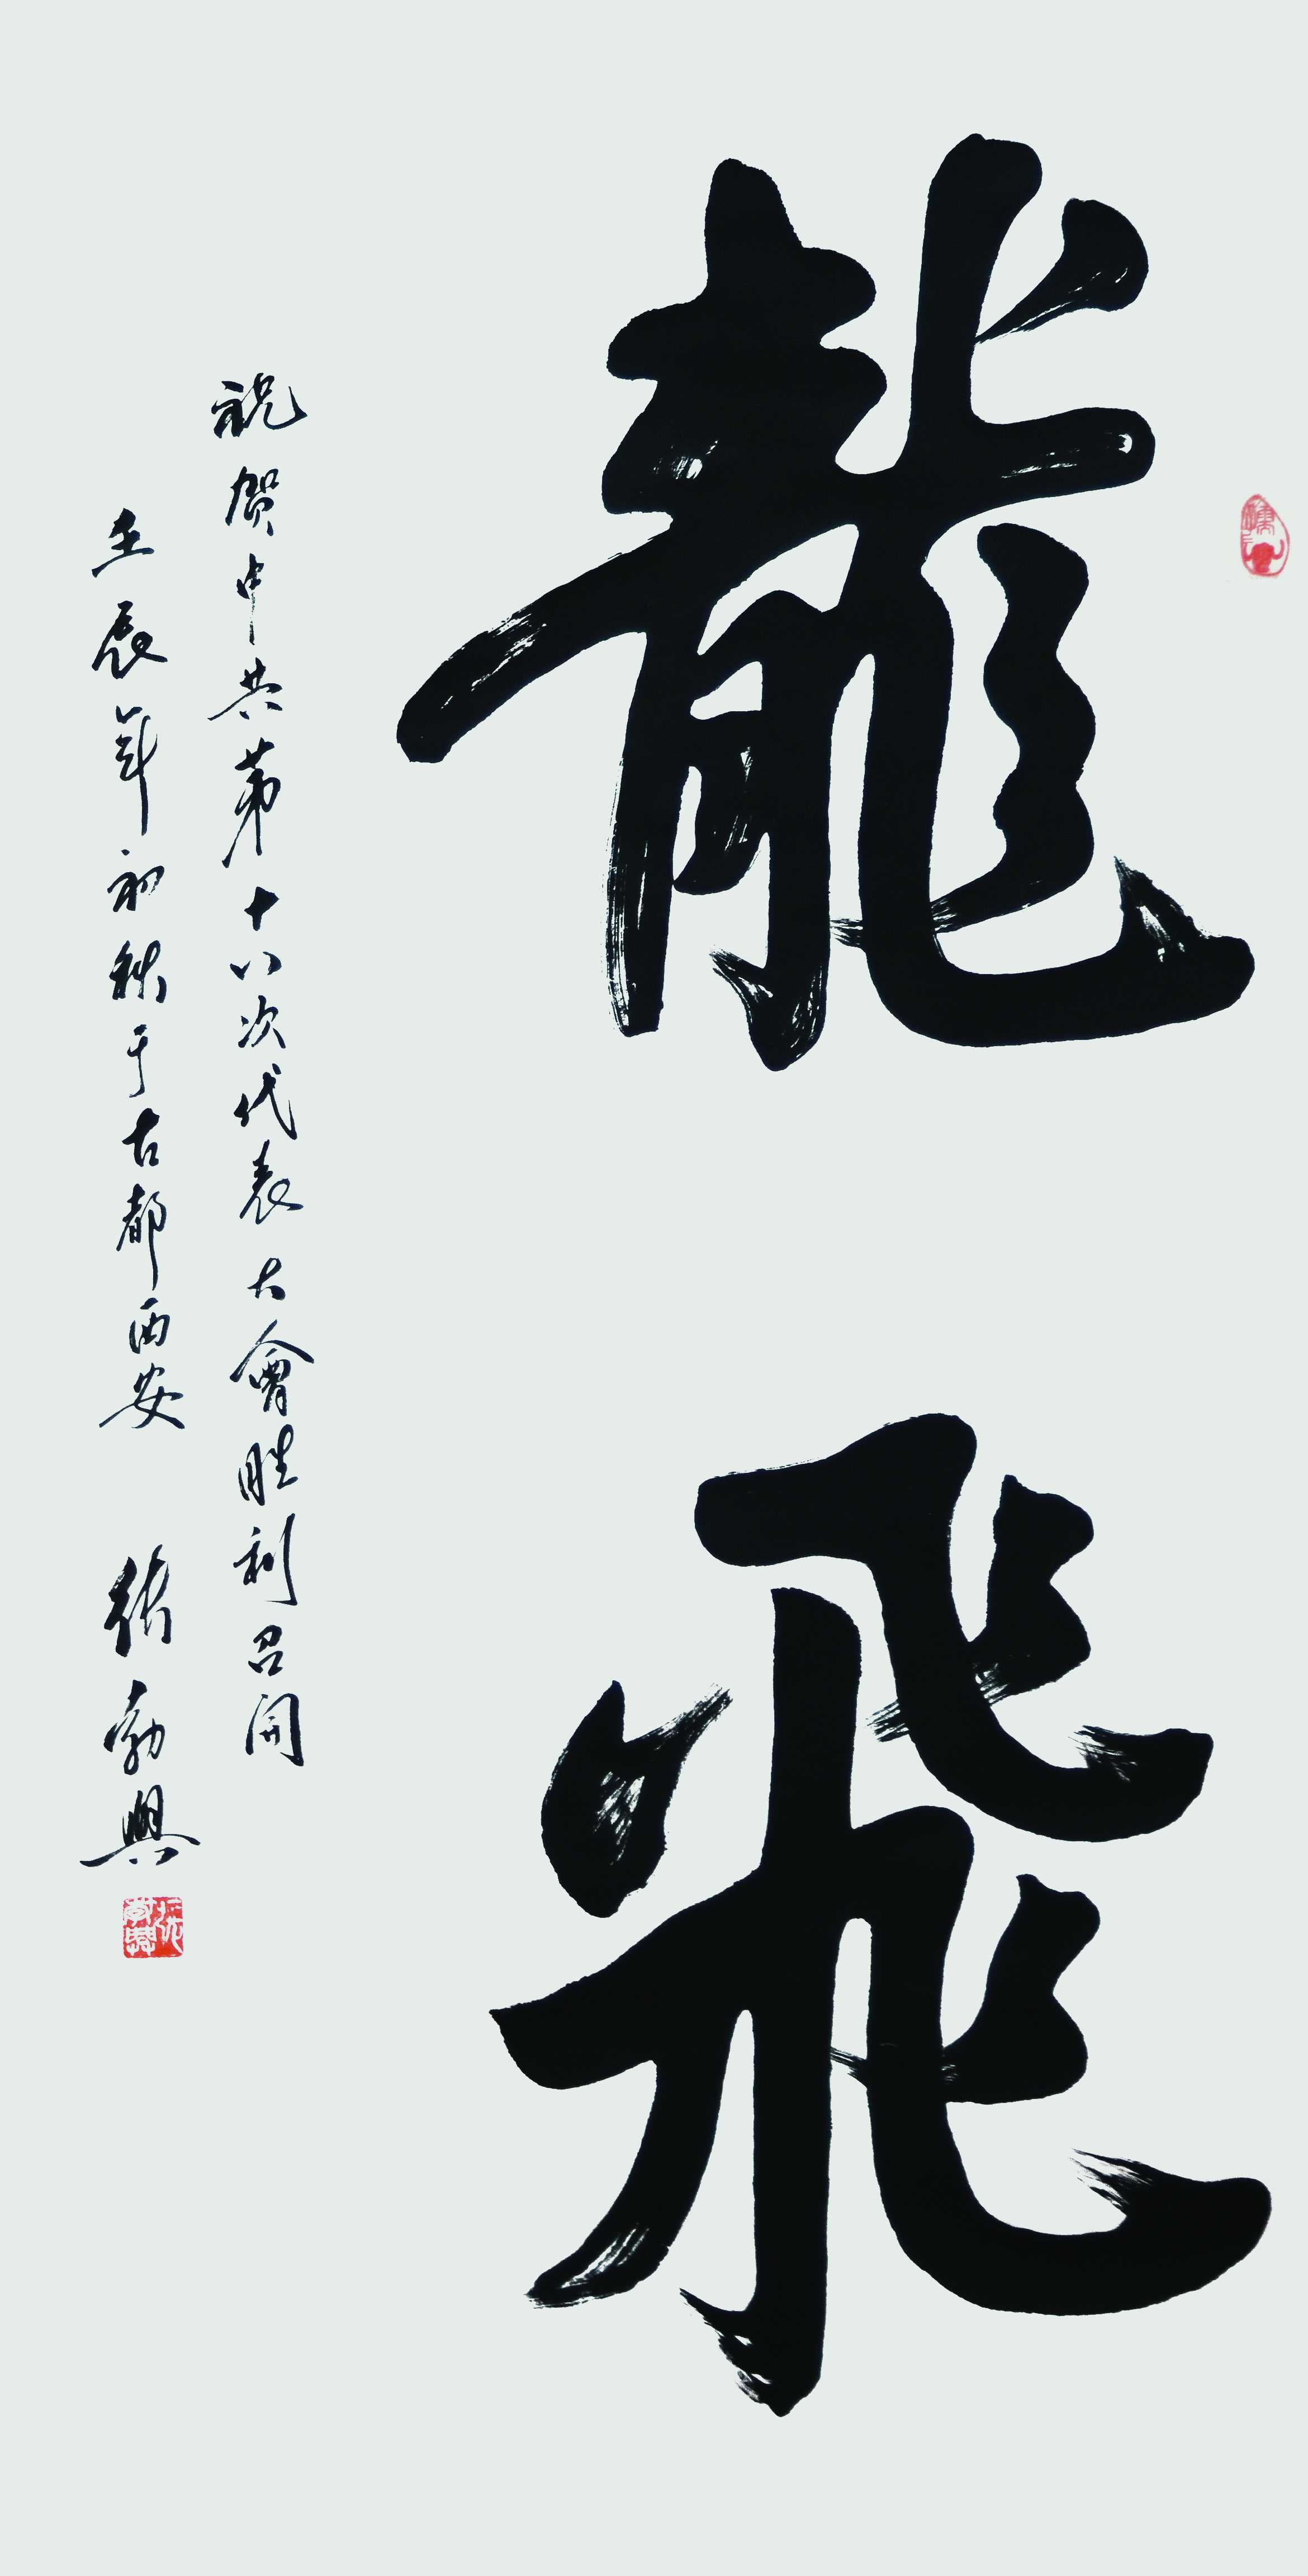 龍飛
祝贺中共第十八次代表大會胜利召開
壬辰年初秋于古都西安 張勃興